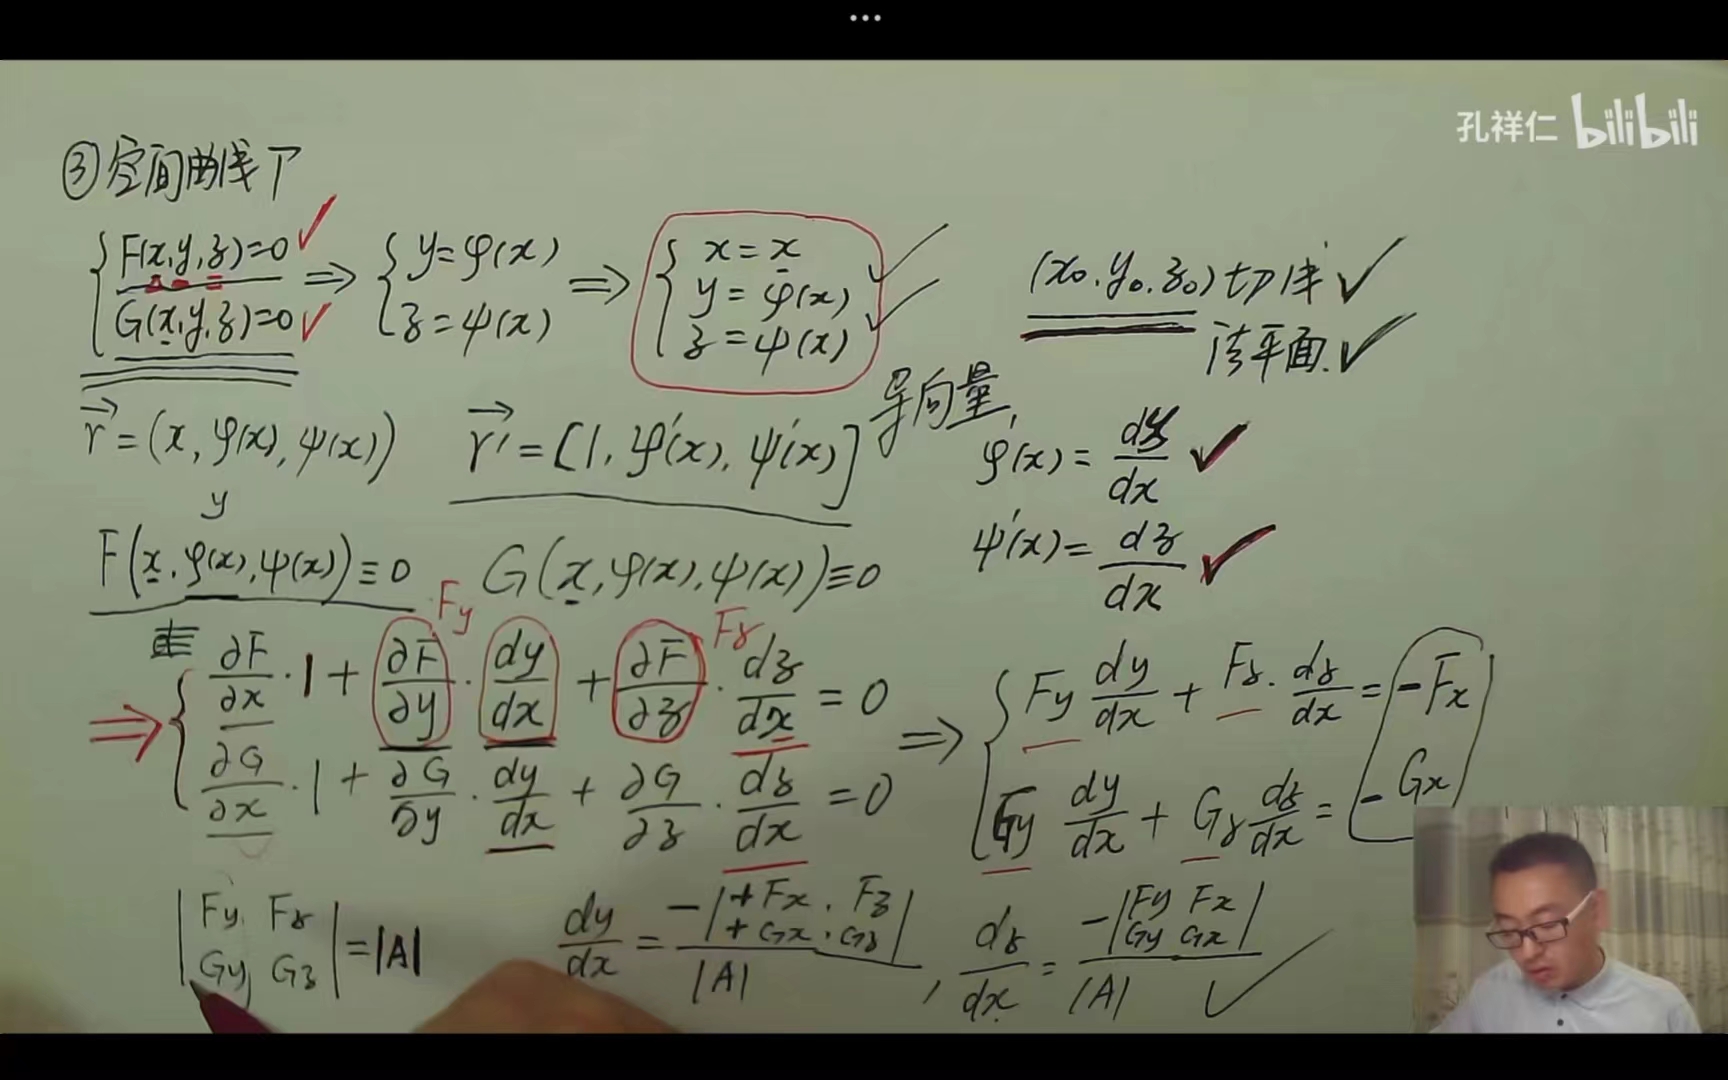 孔祥仁 bilibili
③空间曲线Γ
{F(x,y,z)=0 G(x,y,z)=0 ⇒ {y=φ(x) z=ψ(x) ⇒ {x=x y=φ(x) z=ψ(x)
(x₀,y₀,z₀)切线✓
法平面.✓
r⃗=(x,φ(x),ψ(x)) r⃗′=[1,φ′(x),ψ′(x)] 导向量,
y
φ′(x)=dy/dx ✓
ψ′(x)=dz/dx ✓
F(x,φ(x),ψ(x))≡0 G(x,φ(x),ψ(x))≡0
Fy Fz
⇒ {∂F/∂x·1+∂F/∂y·dy/dx+∂F/∂z·dz/dx=0 ⇒ {Fy dy/dx+Fz·dz/dx=-Fx
∂G/∂x·1+∂G/∂y·dy/dx+∂G/∂z·dz/dx=0 Gy dy/dx+Gz dz/dx=-Gx
|Fy Fz
Gy Gz|=|A| dy/dx=-|+Fx,Fz +Gx,Gz|/|A|, dz/dx=-|Fy Fx Gy Gx|/|A| ✓